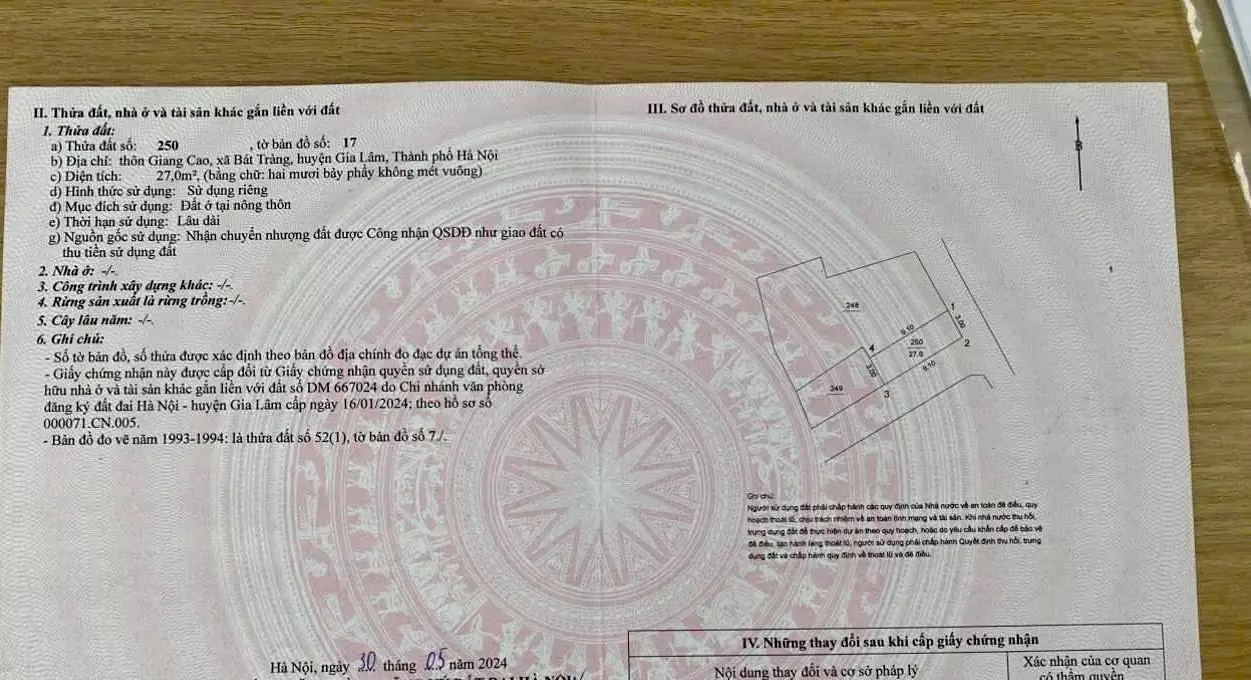 II. Thửa đất, nhà ở và tài sản khác gắn liền với đất
1. Thửa đất:
a) Thửa đất số: 250 , tờ bản đồ số: 17
b) Địa chỉ: thôn Giang Cao, xã Bát Tràng, huyện Gia Lâm, Thành phố Hà Nội
c) Diện tích: 27,0m², (bằng chữ: hai mươi bảy phẩy không mét vuông)
d) Hình thức sử dụng: Sử dụng riêng
đ) Mục đích sử dụng: Đất ở tại nông thôn
e) Thời hạn sử dụng: Lâu dài
g) Nguồn gốc sử dụng: Nhận chuyển nhượng đất được Công nhận QSDĐ như giao đất có
thu tiền sử dụng đất
2. Nhà ở: -/-.
3. Công trình xây dựng khác: -/-.
4. Rừng sản xuất là rừng trồng: -/-.
5. Cây lâu năm: -/-.
6. Ghi chú:
- Số tờ bản đồ, số thửa được xác định theo bản đồ địa chính đo đạc dự án tổng thể.
- Giấy chứng nhận này được cấp đổi từ Giấy chứng nhận quyền sử dụng đất, quyền sở
hữu nhà ở và tài sản khác gắn liền với đất số DM 667024 do Chi nhánh văn phòng
đăng ký đất đai Hà Nội - huyện Gia Lâm cấp ngày 16/01/2024; theo hồ sơ số
000071.CN.005.
- Bản đồ đo vẽ năm 1993-1994: là thửa đất số 52(1), tờ bản đồ số 7./.
Hà Nội, ngày 30 tháng 05 năm 2024
III. Sơ đồ thửa đất, nhà ở và tài sản khác gắn liền với đất
B
248
1
9.10
3.00
4
250
27.0
2
3.00
9.10
249
3
Ghi chú:
Người sử dụng đất phải chấp hành các quy định của Nhà nước về an toàn đê điều, quy
hoạch thoát lũ, chịu trách nhiệm về an toàn tính mạng và tài sản. Khi nhà nước thu hồi,
trưng dụng đất để thực hiện dự án theo quy hoạch, hoặc do yêu cầu khẩn cấp để bảo vệ
đê điều, tạo hành lang thoát lũ, người sử dụng phải chấp hành Quyết định thu hồi, trưng
dụng đất và chấp hành quy định về thoát lũ và đê điều.
IV. Những thay đổi sau khi cấp giấy chứng nhận
Nội dung thay đổi và cơ sở pháp lý
Xác nhận của cơ quan
có thẩm quyền